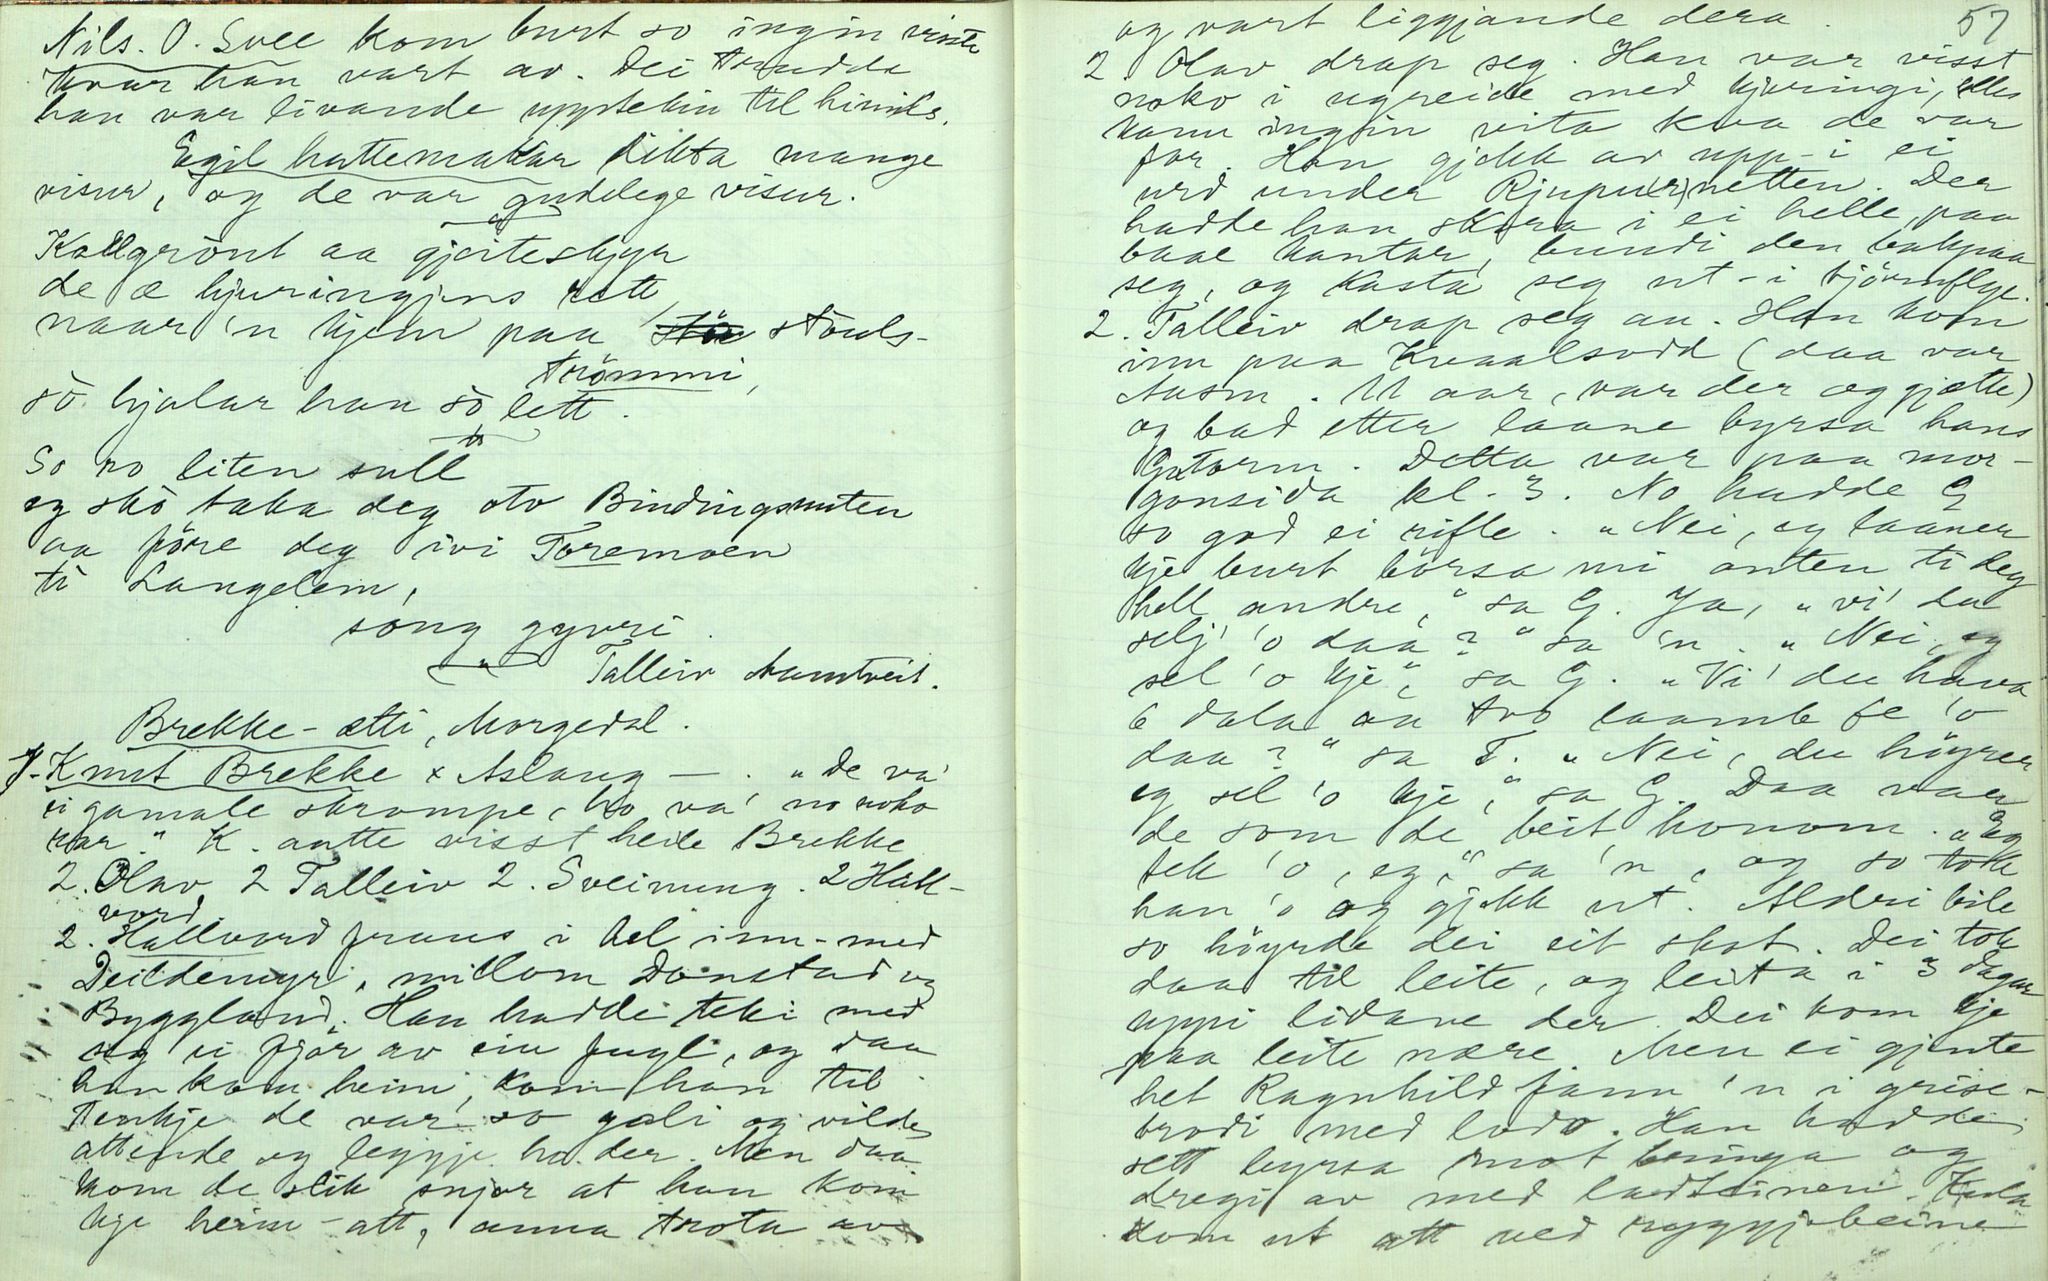 Nils. O. Svee kom burt so ingin visste
kvar han vart av. Dei trudde
han var livande uppteken til himils.
Eigil hattemakar dikta mange
visur, og de var gudelege visur.
Kallgrònt aa gjeiteskjyr
de æ hjuringjens rett
naar 'n kjem paa stòuls-
trömmi,
sò hjalar han sò lett.
So ro liten sull
eg skò taka deg oto Bindingsnuten
aa före deg ivi Toremoen
ti Langelem,
song gyvri.
Talleiv Aamtveit.
Brekke-ætti, Morgedal.
1. Knut Brekke x Aslaug — . "De va'
ei gamale skrompe, ho va' no noko
rar." K. aatte visst heile Brekke
2. Olav 2 Talleiv 2. Sveinung. 2 Hall-
vord
2. Hallvord fraus i hel inn-med
Deildemyr, millom Dònstad og
Byggland. Han hadde teki med
seg ei fjør av ein fugl, og daa
han kom heim, kom han til
tenkje de var so gali og vilde
attende og leggje ho der. Men daa
kom de slik snjor at han kom
kje heim-att, anna trota av
og vart liggjande dera. 57
2 Olav drap seg. Han var visst
noko i ugreide med kjeringi, elles
kann ingin vita kva de var
for. Han gjekk av upp-i ei
urd under Rjupu(r)netten. Der
hadde han skora i ei helle, paa
baae kantar, bundi den bakpaa
seg, og kasta seg ut-i bjørnflye.
2. Talleiv drap seg au. Han kom
inn paa Kvaalsodd (daa var
Aasm. 11 aar, var der og gjætte)
og bad etter laane byrsa hans
Gutorm. Detta var paa mor-
gonsida kl. 3. No hadde G
so god ei rifle. "Nei, eg laaner
kje burt börsa mi anten ti deg
hell andre," sa G. Ja, "vi' du
selj' 'o daa?" sa 'n. "Nei, eg
sel 'o kje", sa G. "Vi' du hava
6 dala aa tvo laamb fe 'o
daa?" sa T. "Nei, du höyrer
eg sel 'o kje," sa G. Daa var
de som de beit honom. "Eg
tek 'o, eg," sa 'n, og so tok
han 'o og gjekk ut. Aldri bile
so höyrde dei eit skot. Dei tok
daa til leite, og leita i 3 dagar
uppi lidane der. Dei kom kje
paa leite nære. Men ei gjente
het Ragnhild fann 'n i grise-
brodi med lodo. Han hadde
sett byrsa mot bringa og
dregi av med ladsteineri. Kula
kom ut att ved ryggjebeine